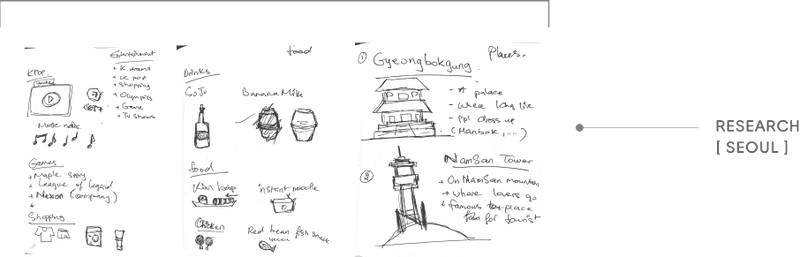 Entertainment
+ K drama
+ K pop
+ Shopping
+ Olympics
+ Game
+ TV shows
Kpop
Music notes
Games
+ Maple story
+ League of legend
+ Nexon (company)
+
Shopping
food
Drinks
SoJu
Banana Milk
food
Kim bap
instant noodle
Chicken
Red bean fish snack
Places.
① Gyeongbokgung
- A palace
- where king live
- ppl dress up
(Hanbok, ...)
②
NamSan Tower
+ On NamSan mountain
+ where lovers go
+ famous place
for tourist
RESEARCH
[ SEOUL ]